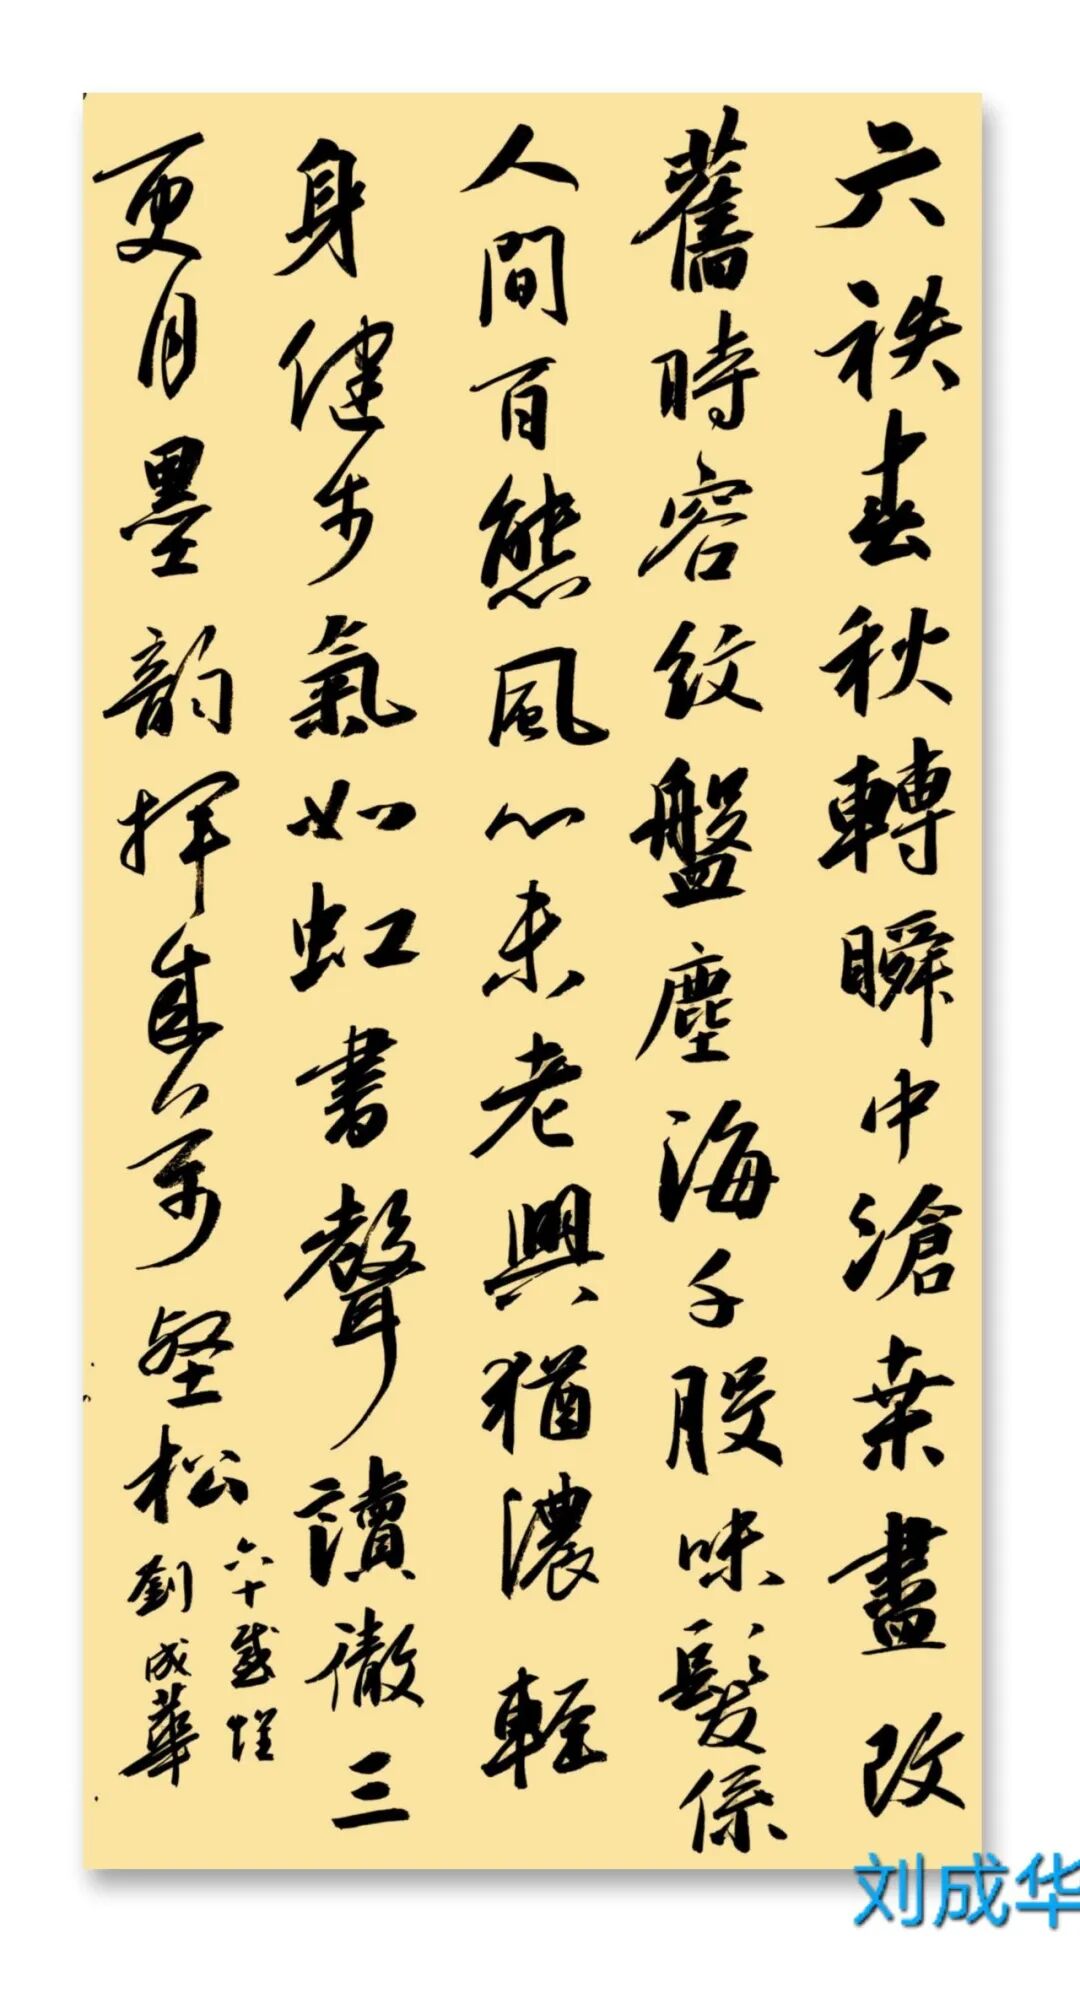 六袟春秋轉瞬中滄桒盡改
舊時容紋盤塵海千股味髮係
人間百態風心未老興猶濃輕
身健步氣如虹書聲讀徹三
更月墨韵揮成萬壑松
六十感懷
劉成華
刘成华